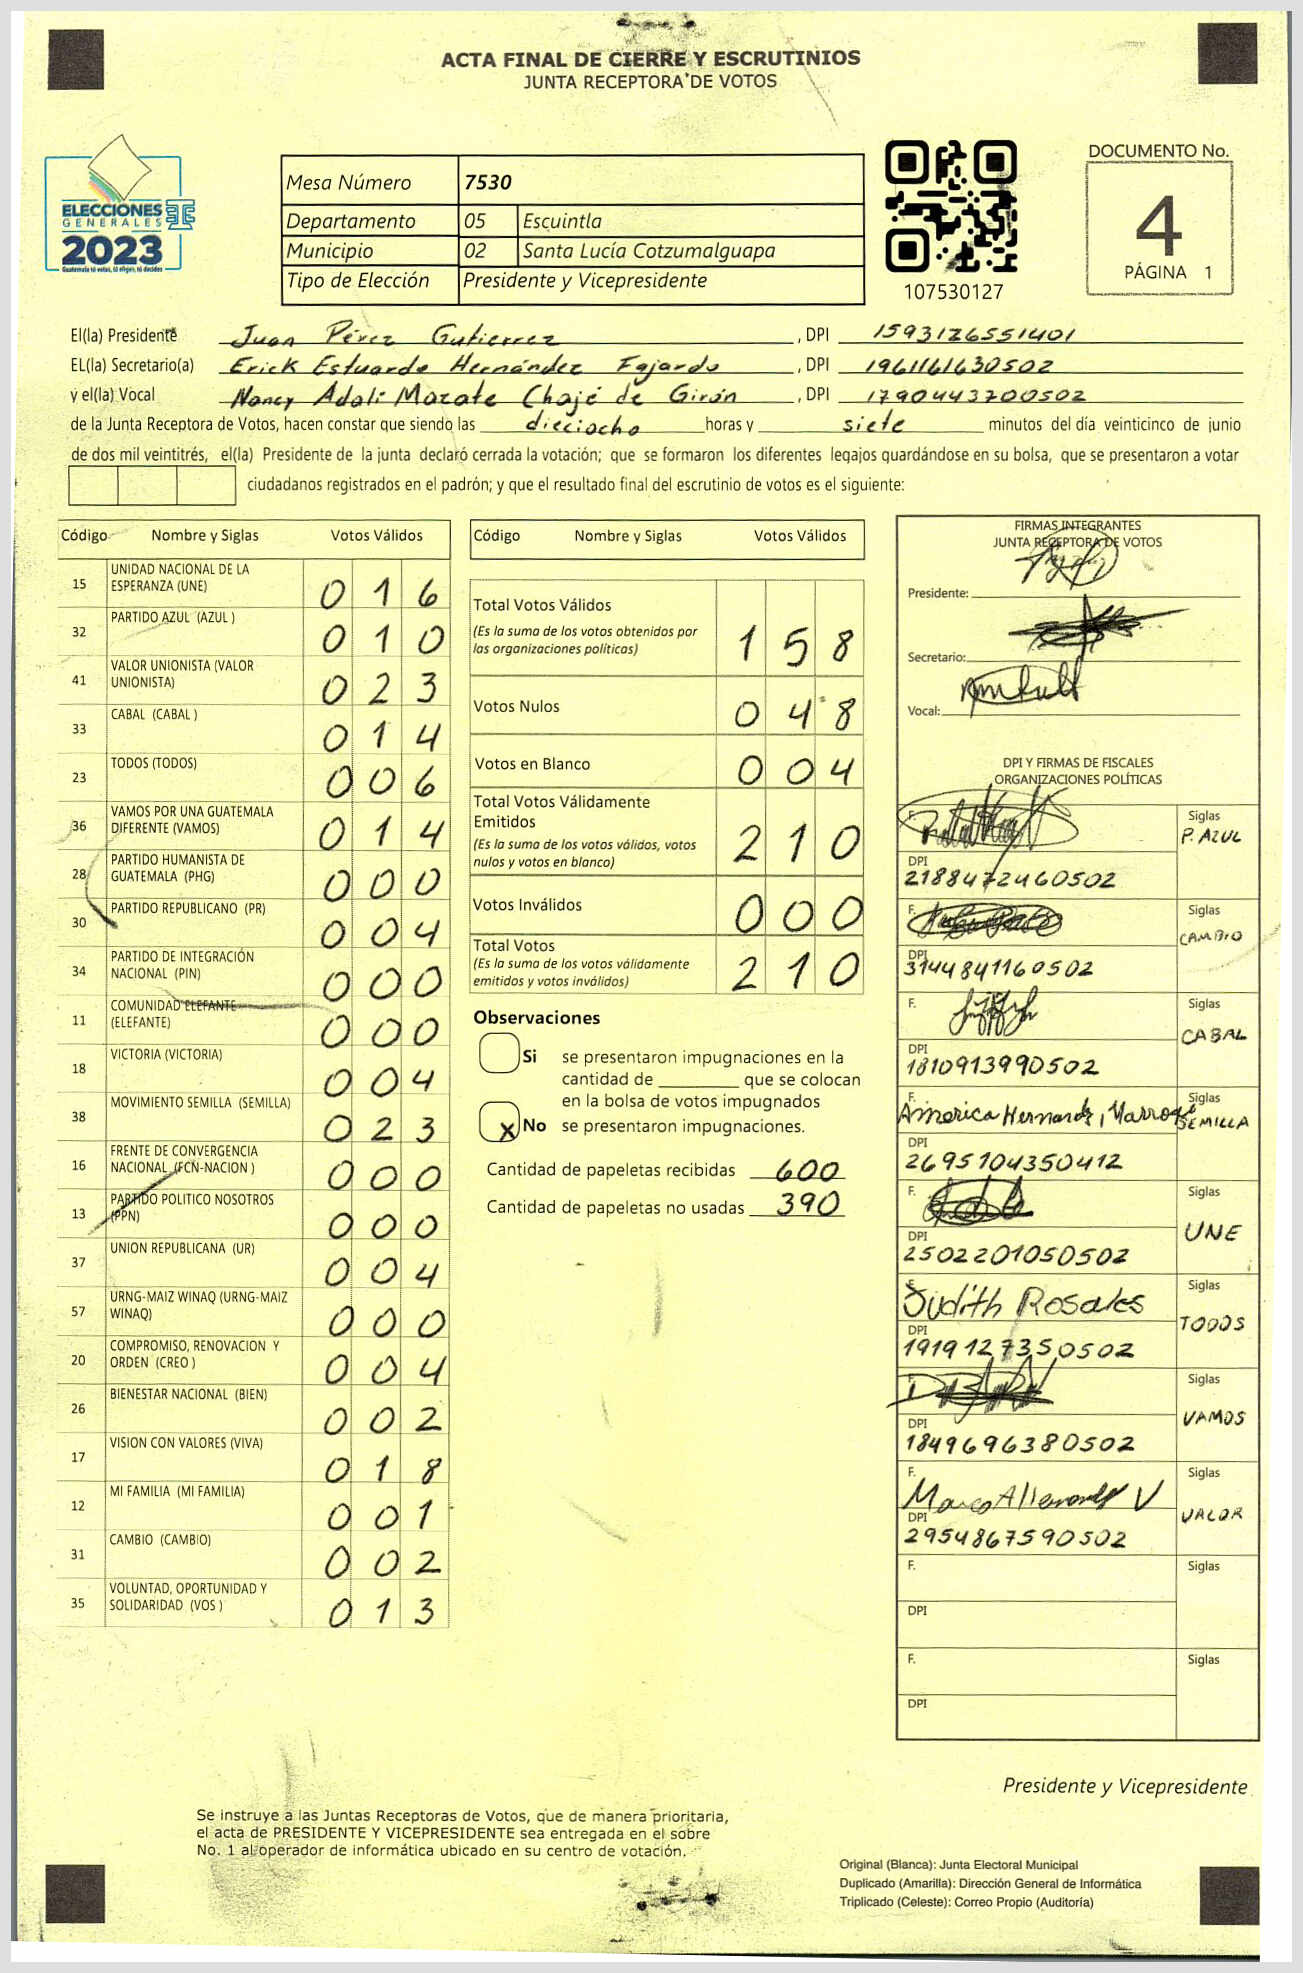 ACTA FINAL DE CIERRE Y ESCRUTINIOS
JUNTA RECEPTORA DE VOTOS
ELECCIONES
GENERALES
2023
Guatemala tú votas, tú eliges, tú decides
Mesa Número 7530
Departamento 05 Escuintla
Municipio 02 Santa Lucía Cotzumalguapa
Tipo de Elección Presidente y Vicepresidente
107530127
DOCUMENTO No.
4
PÁGINA 1
El(la) Presidente Juan Pérez Gutierrez, DPI 1593126551401
EL(la) Secretario(a) Erick Estuardo Hernández Fajardo, DPI 1961161630502
y el(la) Vocal Nancy Adali Mazate Chajé de Girón, DPI 1790443700502
de la Junta Receptora de Votos, hacen constar que siendo las dieciocho horas y siete minutos del día veinticinco de junio
de dos mil veintitrés, el(la) Presidente de la junta declaró cerrada la votación; que se formaron los diferentes legajos guardándose en su bolsa, que se presentaron a votar
ciudadanos registrados en el padrón; y que el resultado final del escrutinio de votos es el siguiente:
Código Nombre y Siglas Votos Válidos
15 UNIDAD NACIONAL DE LA ESPERANZA (UNE) 016
32 PARTIDO AZUL (AZUL ) 010
41 VALOR UNIONISTA (VALOR UNIONISTA) 023
33 CABAL (CABAL ) 014
23 TODOS (TODOS) 006
36 VAMOS POR UNA GUATEMALA DIFERENTE (VAMOS) 014
28 PARTIDO HUMANISTA DE GUATEMALA (PHG) 000
30 PARTIDO REPUBLICANO (PR) 004
34 PARTIDO DE INTEGRACIÓN NACIONAL (PIN) 000
11 COMUNIDAD ELEFANTE (ELEFANTE) 000
18 VICTORIA (VICTORIA) 004
38 MOVIMIENTO SEMILLA (SEMILLA) 023
16 FRENTE DE CONVERGENCIA NACIONAL (FCN-NACION ) 000
13 PARTIDO POLITICO NOSOTROS (PPN) 000
37 UNION REPUBLICANA (UR) 004
57 URNG-MAIZ WINAQ (URNG-MAIZ WINAQ) 000
20 COMPROMISO, RENOVACION Y ORDEN (CREO ) 004
26 BIENESTAR NACIONAL (BIEN) 002
17 VISION CON VALORES (VIVA) 018
12 MI FAMILIA (MI FAMILIA) 001
31 CAMBIO (CAMBIO) 002
35 VOLUNTAD, OPORTUNIDAD Y SOLIDARIDAD (VOS ) 013
Código Nombre y Siglas Votos Válidos
Total Votos Válidos
(Es la suma de los votos obtenidos por
las organizaciones políticas) 158
Votos Nulos 048
Votos en Blanco 004
Total Votos Válidamente
Emitidos
(Es la suma de los votos válidos, votos
nulos y votos en blanco) 210
Votos Inválidos 000
Total Votos
(Es la suma de los votos válidamente
emitidos y votos inválidos) 210
Observaciones
Si se presentaron impugnaciones en la
cantidad de ________ que se colocan
en la bolsa de votos impugnados
X No se presentaron impugnaciones.
Cantidad de papeletas recibidas 600
Cantidad de papeletas no usadas 390
FIRMAS INTEGRANTES
JUNTA RECEPTORA DE VOTOS
Presidente:
Secretario:
Vocal:
DPI Y FIRMAS DE FISCALES
ORGANIZACIONES POLÍTICAS
F. Siglas P. AZUL
DPI 2188472460502
F. Siglas CAMBIO
DPI 3144841160502
F. Siglas CABAL
DPI 1810913990502
F. America Hernandz, Siglas SEMILLA
DPI 2695104350412
F. Siglas UNE
DPI 2502201050502
F. Judith Rosales Siglas TODOS
DPI 1919127350502
F. Siglas VAMOS
DPI 1849696380502
F. Siglas VALOR
DPI 2954867590502
F. Siglas
DPI
F. Siglas
DPI
Presidente y Vicepresidente
Se instruye a las Juntas Receptoras de Votos, que de manera prioritaria,
el acta de PRESIDENTE Y VICEPRESIDENTE sea entregada en el sobre
No. 1 al operador de informática ubicado en su centro de votación.
Original (Blanca): Junta Electoral Municipal
Duplicado (Amarilla): Dirección General de Informática
Triplicado (Celeste): Correo Propio (Auditoría)